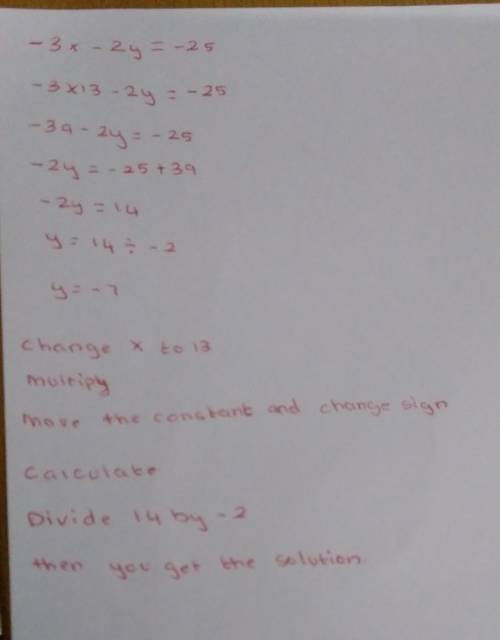 -3x - 2y = -25
-3x13 - 2y = -25
-39 - 2y = -25
-2y = -25+39
-2y = 14
y = 14 ÷ -2
y = -7
Change x to 13
multipy
move the constant and change sign
Calculate
Divide 14 by -2
then you get the solution.